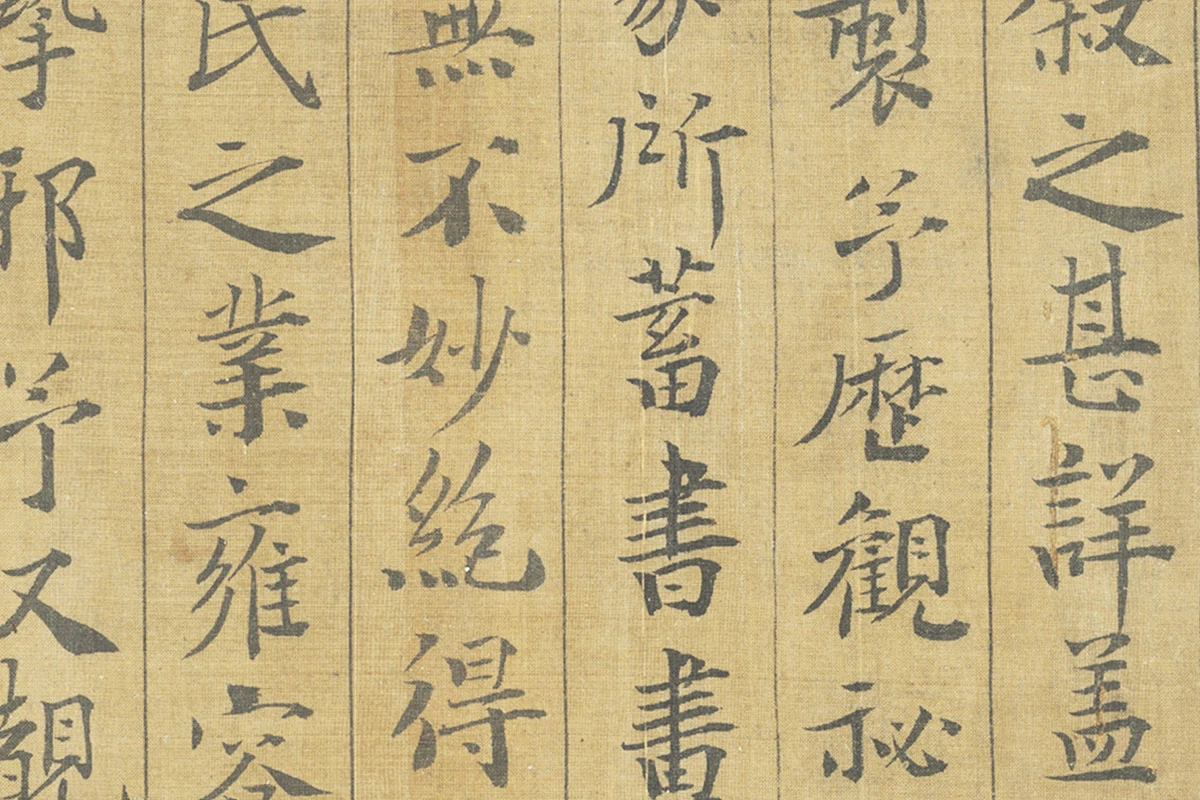 敘之甚詳蓋
製予歷觀秘
家所蓄書畫
無不妙絕得
氏之業雍容
邪予又觀